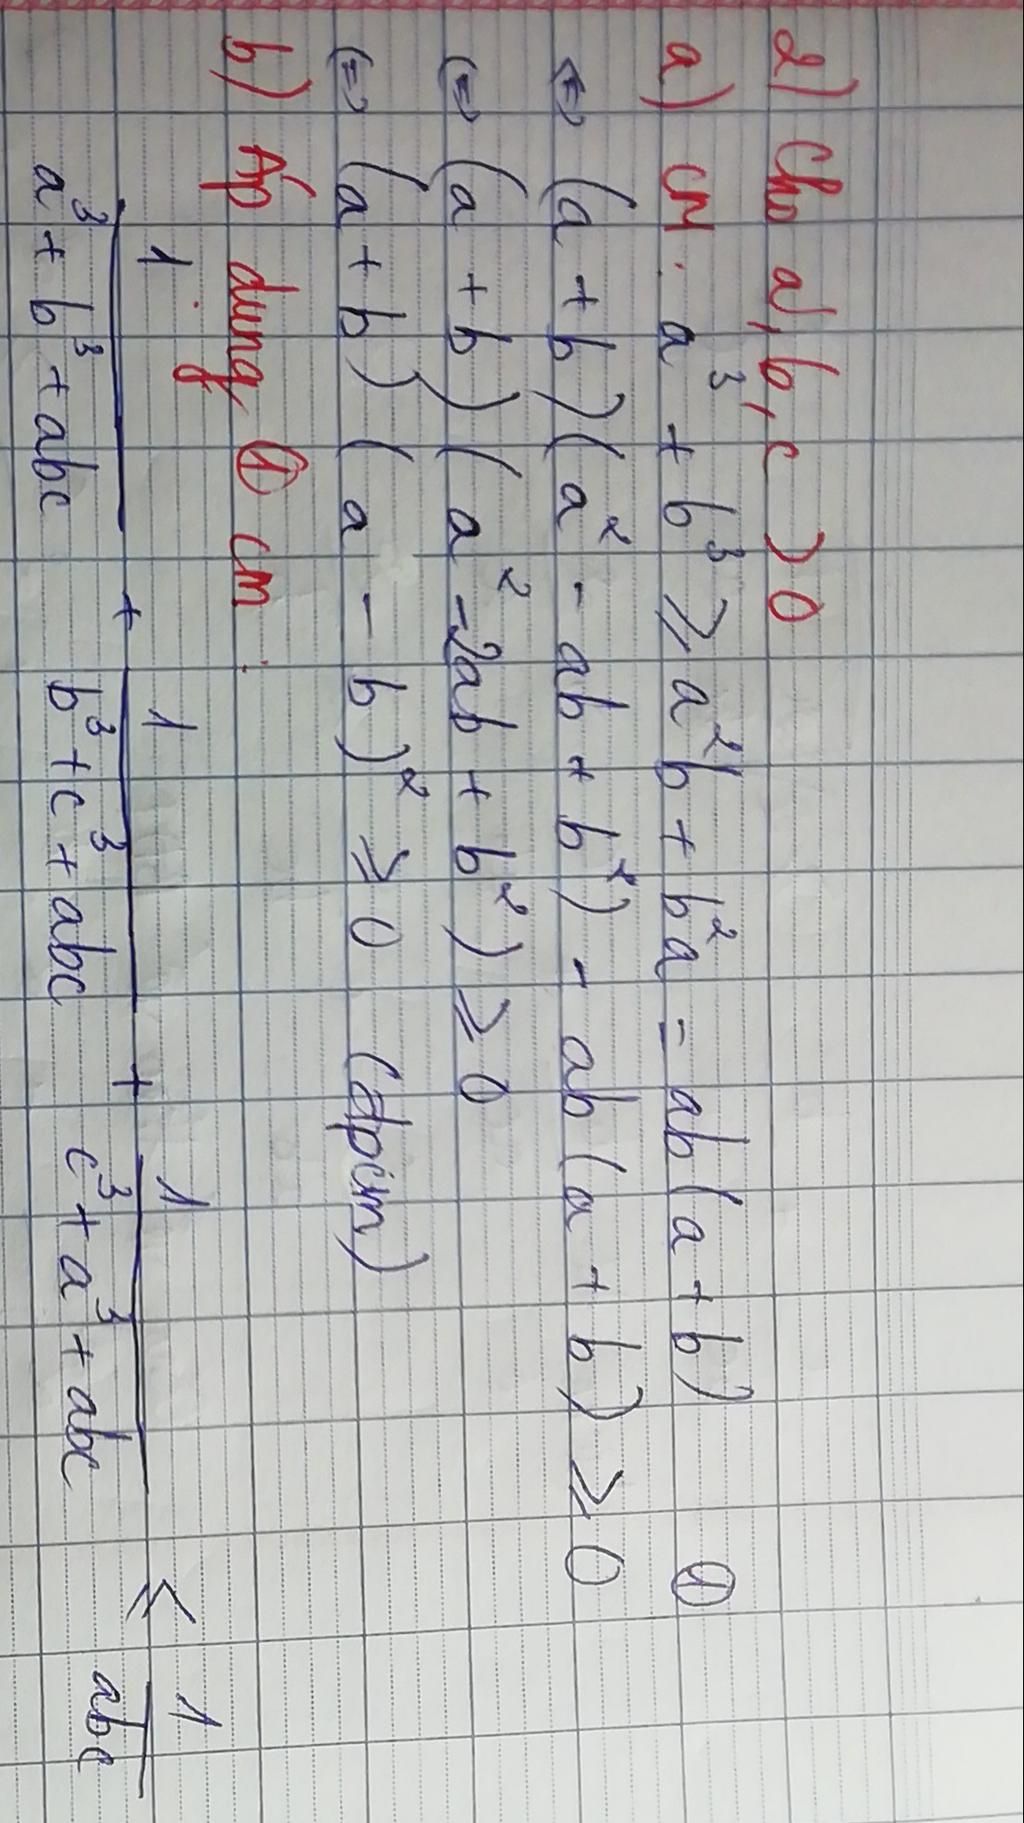 2) Cho a, b, c > 0
a) CM: a³ + b³ ⩾ a²b + b²a = ab(a + b) ①
⇔ (a + b)(a² - ab + b²) - ab(a + b) ⩾ 0
⇔ (a + b)(a² - 2ab + b²) ⩾ 0
⇔ (a + b)(a - b)² ⩾ 0 (đpcm)
b) Áp dụng ① cm:
1/(a³ + b³ + abc) + 1/(b³ + c³ + abc) + 1/(c³ + a³ + abc) ⩽ 1/abc